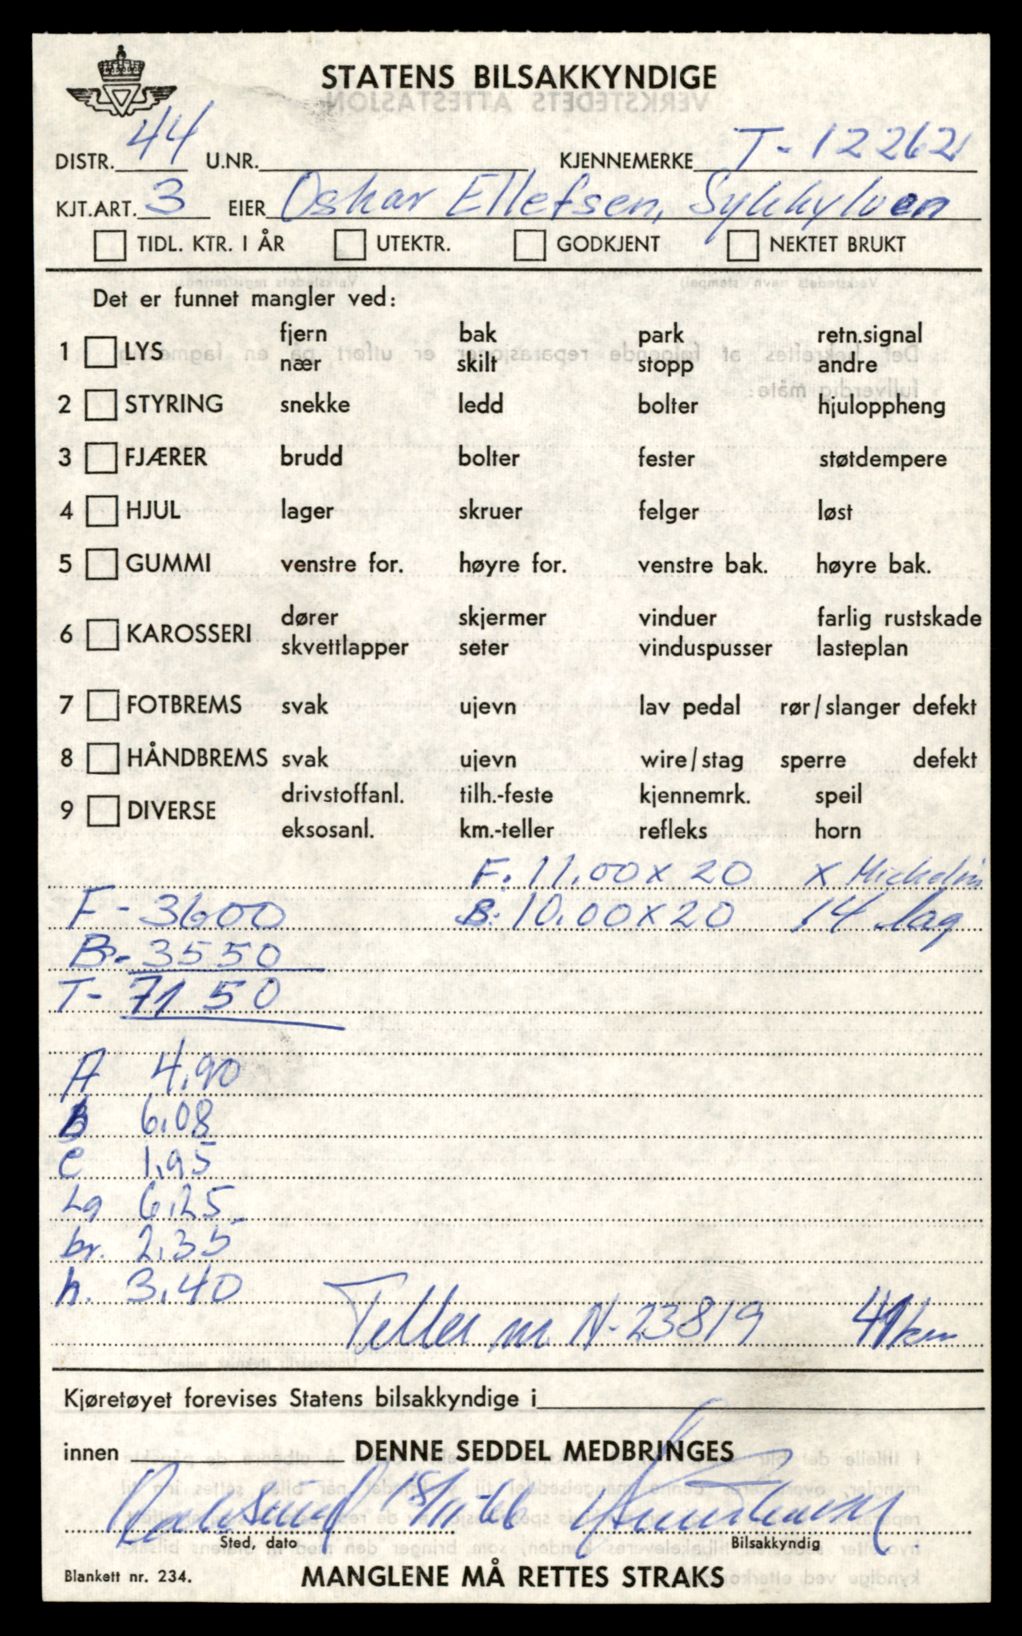 STATENS BILSAKKYNDIGE
DISTR. 44 U.NR. KJENNEMERKE T-12262
KJT.ART. 3 EIER Oskar Ellefsen, Sykkylven
TIDL. KTR. I ÅR UTEKTR. GODKJENT NEKTET BRUKT
Det er funnet mangler ved:
1 LYS fjern bak park retn.signal
nær skilt stopp andre
2 STYRING snekke ledd bolter hjuloppheng
3 FJÆRER brudd bolter fester støtdempere
4 HJUL lager skruer felger løst
5 GUMMI venstre for. høyre for. venstre bak. høyre bak.
6 KAROSSERI dører skjermer vinduer farlig rustskade
skvettlapper seter vinduspusser lasteplan
7 FOTBREMS svak ujevn lav pedal rør/slanger defekt
8 HÅNDBREMS svak ujevn wire/stag sperre defekt
9 DIVERSE drivstoffanl. tilh.-feste kjennemrk. speil
eksosanl. km.-teller refleks horn
F. 11.00 x 20 x Michelin
F - 3600 B: 10.00 x 20 14 lag
B - 3550
T - 7150
A 4,90
B 6,08
C 1,95
Lg 6,25
br. 2,35
h. 3,40
Teller nr. N-23819 41 km
Kjøretøyet forevises Statens bilsakkyndige i
innen DENNE SEDDEL MEDBRINGES
Sted, dato Bilsakkyndig
Blankett nr. 234. MANGLENE MÅ RETTES STRAKS